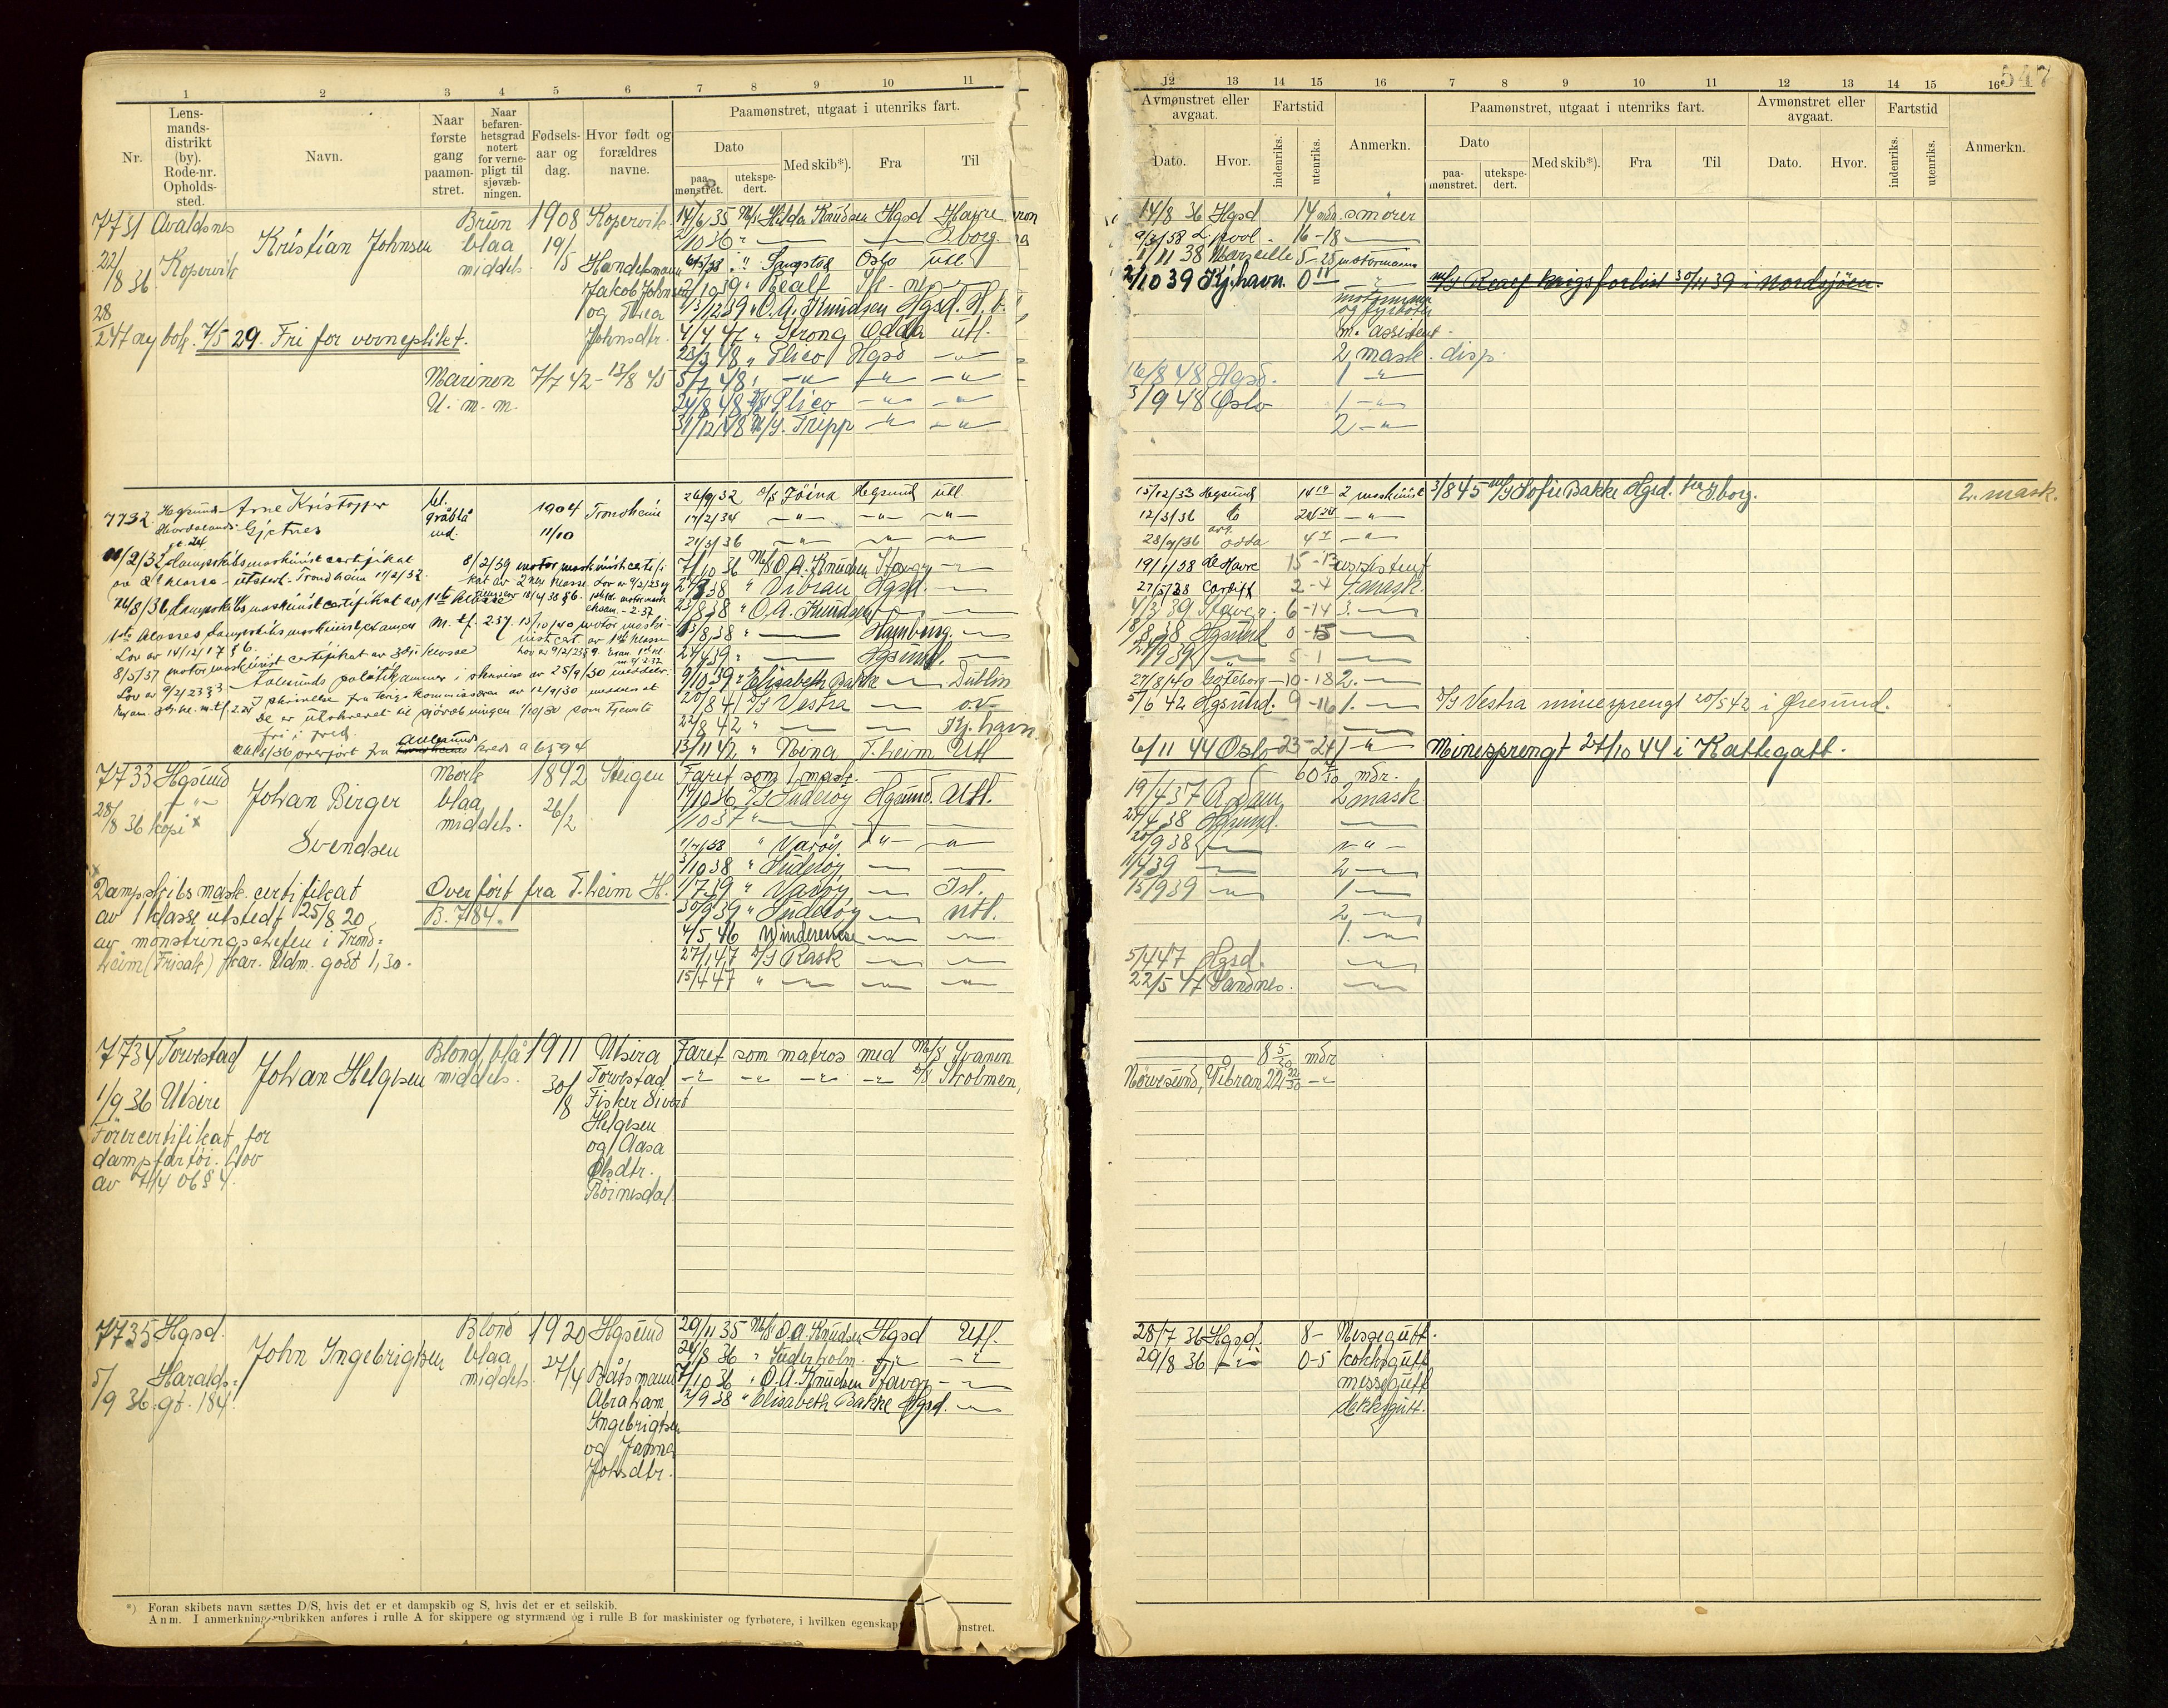 1 2 3 4 5 6 7 8 9 10 11
Nr.
Lens-
mands-
distrikt
(by).
Rode-nr.
Opholds-
sted.
Navn.
Naar
første
gang
paamøn-
stret.
Naar
befaren-
hetsgrad
notert
for verne-
pligt til
sjøvæb-
ningen.
Fødsels-
aar og
dag.
Hvor født og
forældres
navne.
Paamønstret, utgaat i utenriks fart.
Dato
paa-
mønstret.
utekspe-
dert.
Med skib*).
Fra
Til
7731 Avaldsnes Brün 1908 Kopervik 14/6 35 M/s Hilda Knudsen Hgsd Havre
Kristian Johnsen blaa 19/5 2/10 36 " —"— —"— S.borg
22/8 36 Kopervik middels Handelsmann " Sangstad Oslo utl.
Jakob Johnsen 2/10 39 " Realf
28 og Thea 13/12 39 " O.A. Knudsen Hgsd.
247 ny bok. 7/5 29. Fri for verneplikt. Johnsdtr. 4/4 47 " Strong Odda utl.
23/3 48 " Plico Hgsd —"—
Marinen 7/7 42 - 13/8 45 5/7 48 " —"— —"— —"—
U. m. m. 24/8 48 Plico —"— —"—
31/12 48 M/S. Tripp —"— —"—
7732 Hgsund Arne Kristoffer bl. 1904 Trondheim 26/9/32 D/S Jöina Hgsund utl
Hordalands- Gjetnes gråblå 11/10 17/2/34 —"— —"— —"—
gt. 24 md. 21/3/36 —"— —"— —"—
11/2/32 Dampskibsmaskinistcertifikat 8/2/39 motormaskinistcerti- 7/10 36 M/S O.A. Knudsen Stavgr
av 2 klasse utstedt Trondheim 11/2/32. kat av 2 klasse. Lov av 9/2/23 38 " Vibran Hgsd.
24/8/36 Dampskibsmaskinistcertifikat av 1ste klasse 23/8 38 " O.A. Knudsen
1ste klasses dampskibsmaskinisteksamen m.tf. 2.37 13/10/40 motor maski- 13/8,38 " Hamburg
Lov av 14/12/17 § 6. nistcert. av 1ste klasse 24/4 39 " Hgsund.
8/5/37 motormaskinist certifikat av 3dje klasse
Aalesunds politikammer i skrivelse av 25/9/30 meddeler: 9/10 39 " Elisabeth Bakke Dublin
Lov av 9/2/23 § 3 I skrivelse fra krigskommissæren av 12/9/30 meddeles at 20/8 41 D/S Vestra
De er utskrevet til sjövæbningen 1/10/30 som tjeneste 22/8 42 " Kj. havn
fri i fred. 13/11 42 " Nina T.heim Utl
overfört fra Aalesunds kreds a 6594
7733 Hgsund Mörk 1892 Steigen Faret som 1 mask.
—"— Johan Birger blaa 26/2 19/10 36 D/S Suderöy Hgsund. Utl.
28/8 36 kopi Svendsen middels. 1/10 37 "
1/7/38 " Varöy
3/10 38 " Suderöy
Dampskibs mask. certifikat Overfört fra T.heim H. 1/7 39 " Varöy Isl.
av 1 klasse utstedt 25/8 20 B. 784. 30/9 39 " Suderöy utl.
av mönstringschefen i Trond= 4/5 46 Vinderense
heim (Frisak) Kar. Udm. godt 1,30. 27/1 47 D/S Rask
15/4 47 "
7734 Torvestad Blond, blå 1911 Utsira Faret som matros med M/S Svanen
Johan Helgesen middels. 30/8 Torvestad —"— —"— —"— —"— D/S Stolmen,
1/9 36 Utsire Fisker Sivert
Förercertifikat for Helgesen
dampfartöi. Lov og Aasa
av 7/4 06 § 4. Olsdtr.
Röinesdal
7735 Hgsd. Blond 1920 Hgsund 29/11 35 M/S O.A. Knudsen Hgsd Utl.
John Ingebrigtsen blaa 27/4 24/8 36 " Suderholm —"— —"—
5/9 36 Haralds= middels. Båtsmann 7/10 36 " O.A. Knudsen Stavgr —"—
gt. 184. Abraham 2/9 38 " Elisabeth Bakke Hgsd. —"—
Ingebrigtsen
og Janna
Johsdtr.
*) Foran skibets navn sættes D/S, hvis det er et dampskib og S, hvis det er et seilskib.
Anm. I anmerkningsrubrikken anføres i rulle A for skippere og styrmænd og i rulle B for maskinister og fyrbøtere, i hvilken egenskap
12 13 14 15 16 7 8 9 10 11 12 13 14 15 16
547
Avmønstret eller
avgaat.
Dato.
Hvor.
Fartstid
indenriks.
utenriks.
Anmerkn.
Paamønstret, utgaat i utenriks fart.
Dato
paa-
mønstret.
utekspe-
dert.
Med skib*).
Fra
Til
Avmønstret eller
avgaat.
Dato.
Hvor.
Fartstid
indenriks.
utenriks.
Anmerkn.
14/8 36 Hgsd 14 mdr. smörer
9/3/38 L.pool. 16-18
1/11 38 Marseille 5-25 motormann
2/10 39 Kj.havn. 0 11 —"— M/S Realf krigsforlist 30/11 39 i Nordsjöen.
motormann
og fyrböter
m. assistent.
2 mask. disp.
16/8 48 Hgsd. 1 —"—
3/9 48 Oslo 1 —"—
2 —"—
15/12/33 Hgsund 14 19 2 maskinist 3/8 45 M/S Sofie Bakke Hgsd. fra S.borg. 2. mask.
12/3/36 —"—
28/9/36 Odda 4 7 —"—
19/1/38 Le Havre 15-13 assistent
27/5/38 Cardiff 2-4 4 mask.
4/3 39 Stavgr. 6-14 3.
8/8 38 Hgsund 0-15
24/9 39 5-1
27/8/40 Göteborg 10-18 2.
5/6 42 Hgsund. 9-16 1. D/S Vestra minesprengt 20/5 42 i Öresund.
6/11 44 Oslo 23-24 1 —"— Minesprengt 24/10 44 i Kattegatt.
60 mdr.
19/4 37 A.Dam 2 mask.
24/4 38 Hgsund.
20/9 38 —"—
11/4 39 2
15/9 39 1
2
1
5/4 47 Hgsd.
22/5 47 Sandnes.
8 5/30 mdr
Nörvesund, Vibran 22 —"—
28/7 36 Hgsd. 8- Messegutt.
29/8 36 —"— 0-5 kokksgutt
messegutt
dekksgutt.